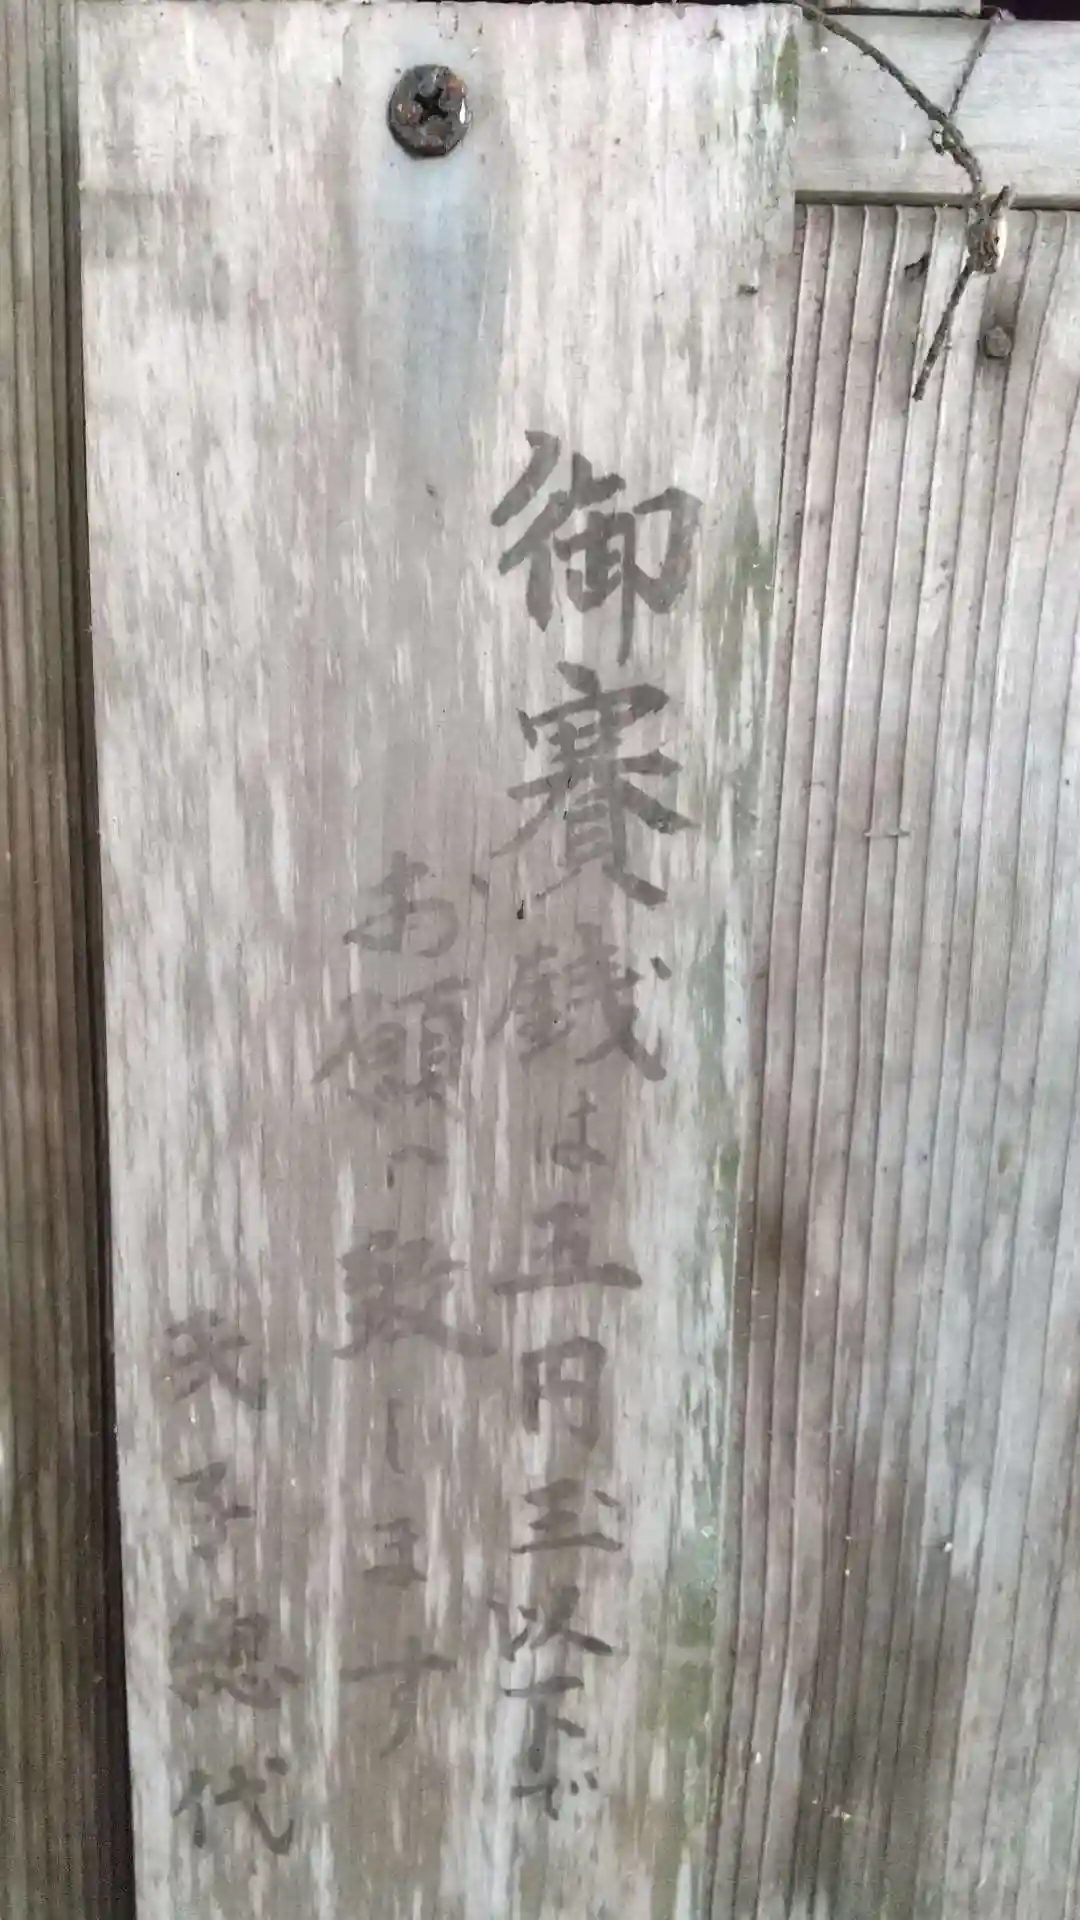 御賽銭は五円玉以下で
お願い致します
氏子総代